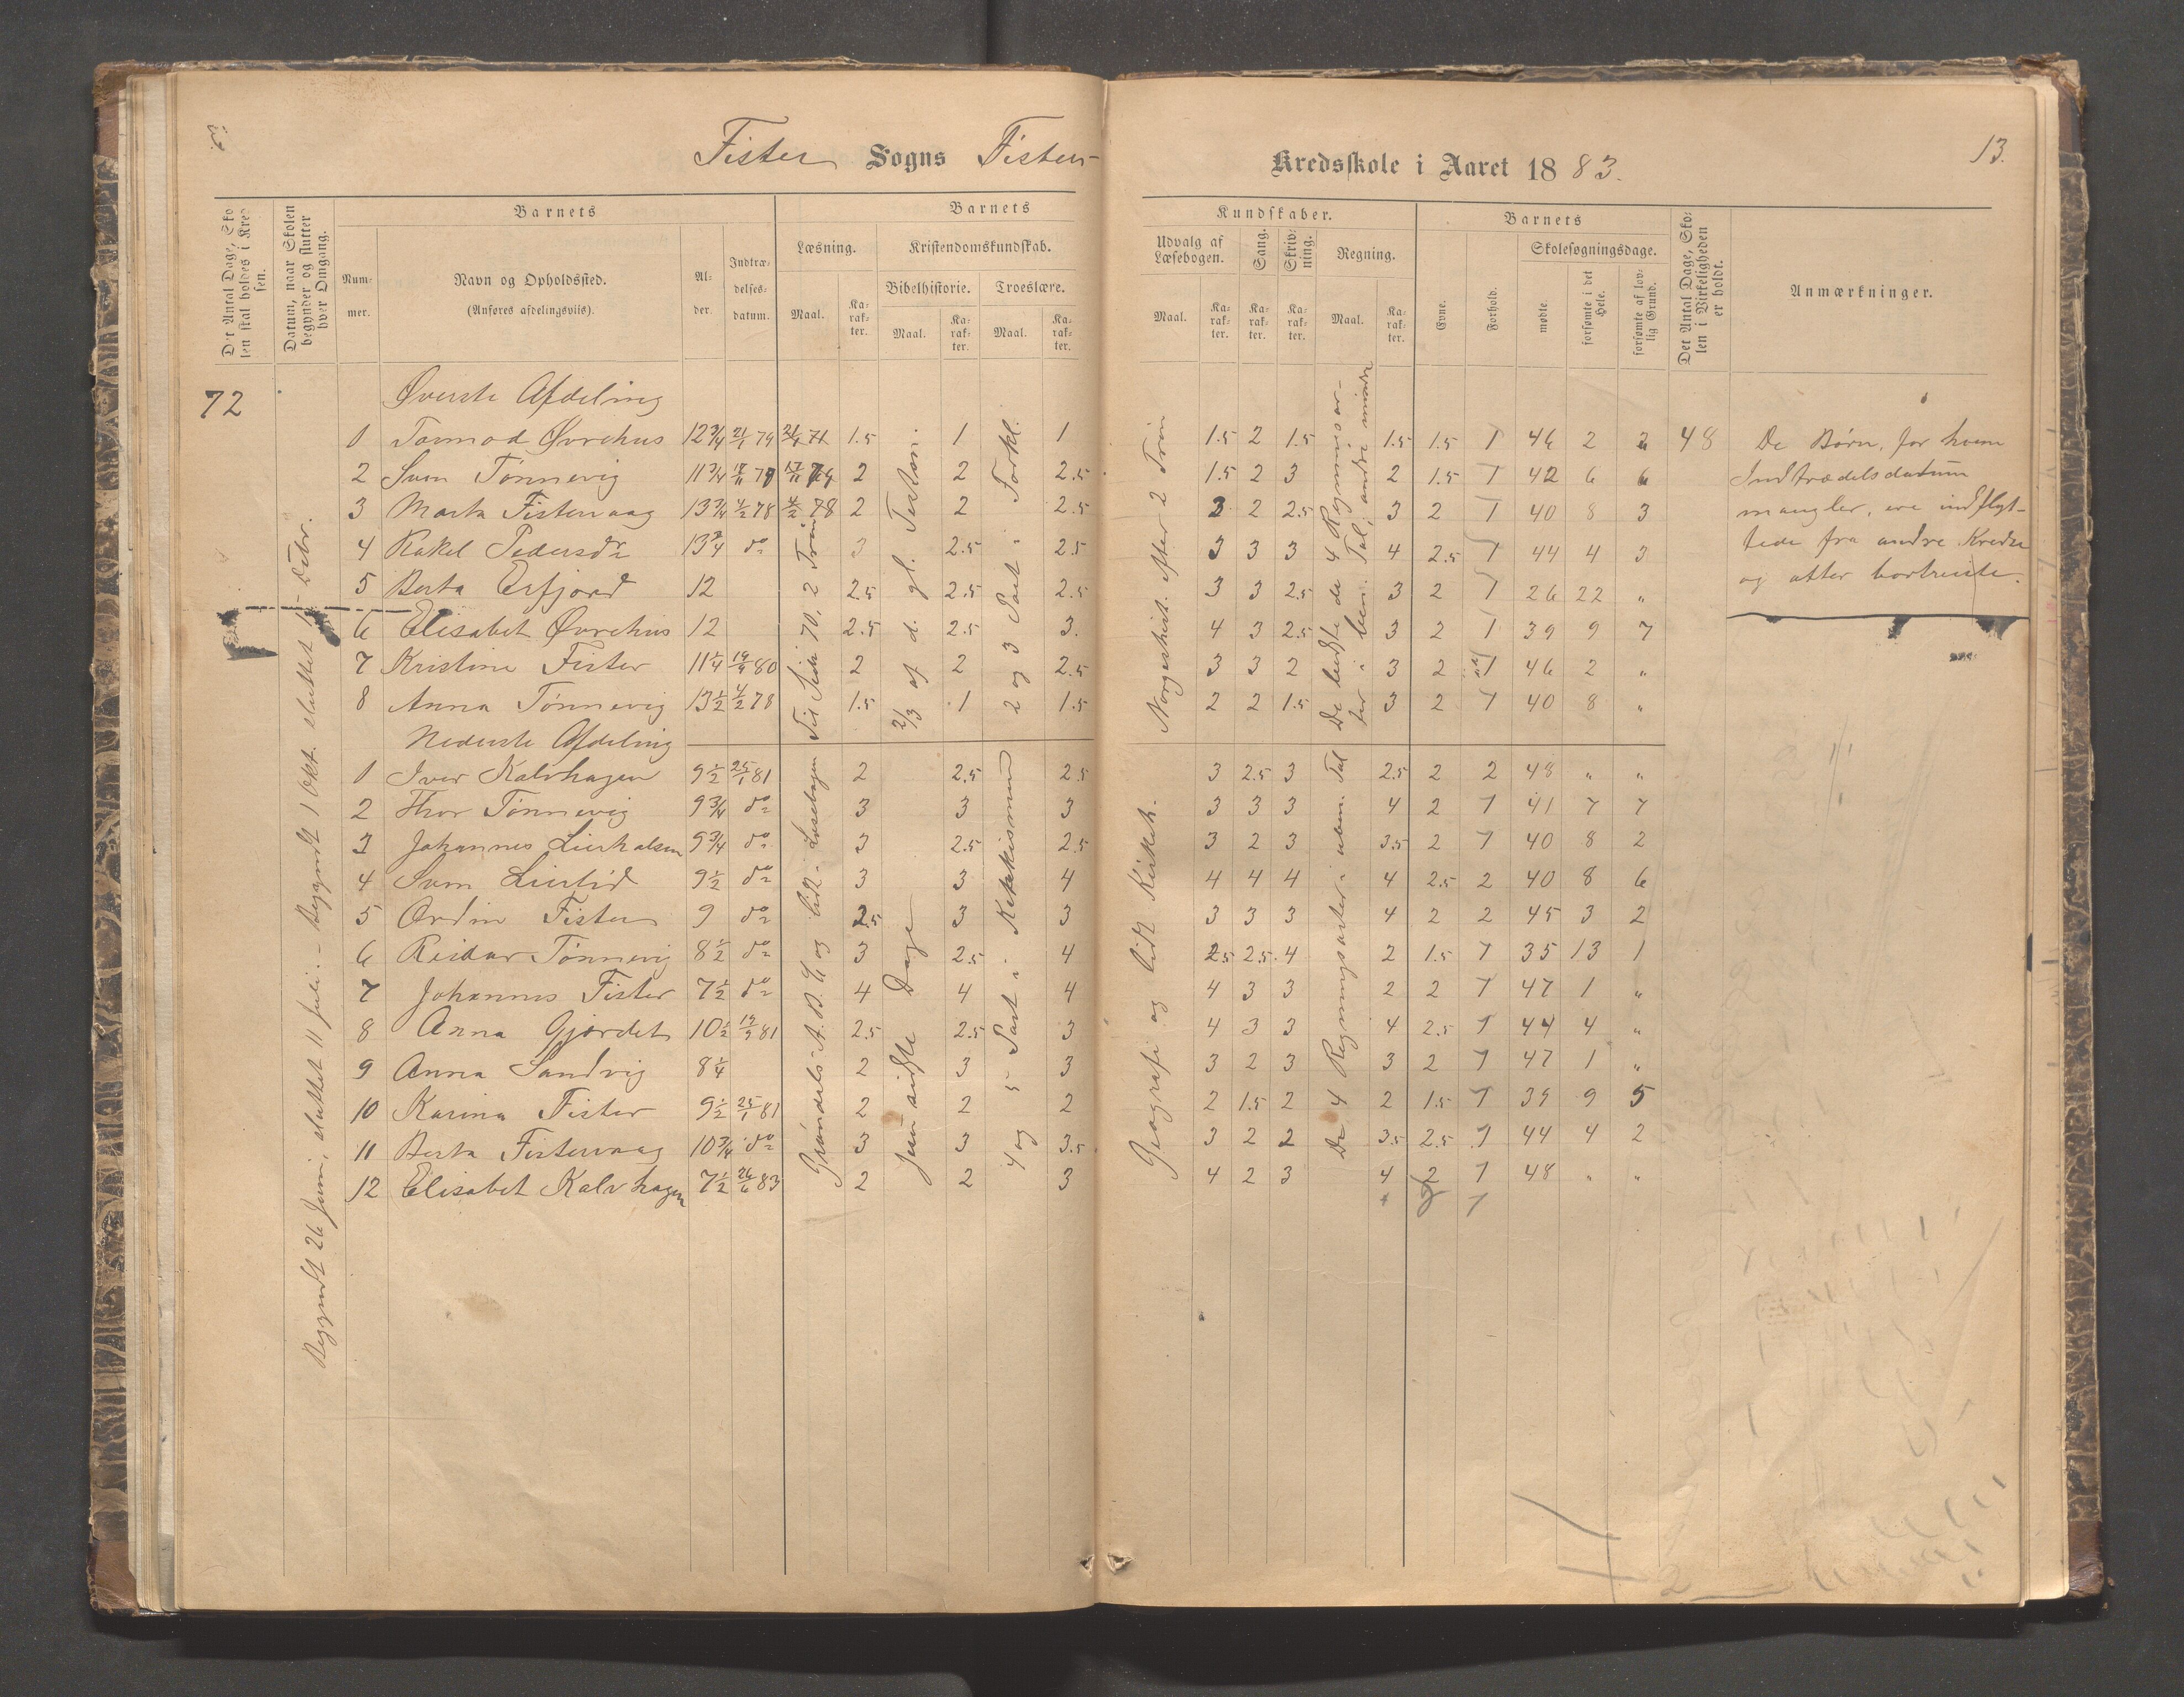 Fister Sogns Fister-
Kredsskole i Aaret 1883.
13.
Det Antal Dage, Skolen skal holdes i Kredsen.
Datum, naar Skolen begynder og slutter hver Omgang.
Barnets
Nummer.
Navn og Opholdssted.
(Anføres afdelingsviis).
Alder.
Indtrædelsesdatum.
Barnets
Læsning.
Maal.
Karakter.
Kristendomskundskab.
Bibelhistorie.
Maal.
Karakter.
Troeslære.
Maal.
Karakter.
Kundskaber.
Udvalg af Læsebogen.
Maal.
Karakter.
Sang.
Karakter.
Skrivning.
Karakter.
Regning.
Maal.
Karakter.
Barnets
Evne.
Forhold.
Skolesøgningsdage.
mødte
forsømte i det Hele.
forsømte af lovlig Grund.
Det Antal Dage, Skolen i Virkeligheden er holdt.
Anmærkninger.
72
Begyndt 26 Juni, sluttet 11 Juli. - Begyndt 1 Okt. sluttet
Øverste Afdeling
Til Side 70, 2 Trin
2/3 af d. gl. Testam.
2 og 3 Part i Forkl.
Norgeshist. efter 2 Trin
De hurtigste de 4 Regningsarter i ben. Tal, andre mindre
1 Tormod Øvrehus 12 3/4 21/1 79 1.5 1 1 1.5 2 1.5 1.5 1.5 1 46 2 2 48
2 Sven Tønnevig 11 3/4 2 2 2.5 1.5 2 3 2 1.5 1 42 6 6
3 Marta Fistervaag 13 3/4 4/2 78 4/2 78 2 2 2.5 3 2 2.5 3 2 1 40 8 3
4 Rakel Pedersdr 13 3/4 do 3 2.5 2.5 3 3 3 4 2.5 1 44 4 3
5 Berta Erfjord 12 2.5 2.5 2.5 3 3 2.5 3 2 1 26 22 "
6 Elisabet Øvrehus 12 2.5 2.5 3. 4 3 2.5 3 2 1 39 9 7
7 Kristine Fister 11 1/4 19/9 80 2 2 2.5 3 3 2 3 2 1 46 2 "
8 Anna Tønnevig 13 1/2 4/2 78 1.5 1 1.5 2 2 1.5 3 2 1 40 8 "
De Børn, for hvem
Indtrædelsesdatum
mangler, ere indflyt-
tede fra andre Kredse
og atter bortreiste.
Nederste Afdeling
Grøndals A.B.C. og lidt i Læsebogen
Jesu sidste Dage
4 og 5 Part i Katekismus
Geografi og lidt Kirkeh.
De 4 Regningsarter i uben. Tal
1 Iver Kalvhagen 9 1/2 25/1 81 2 2.5 2.5 3 2.5 3 2.5 2 2 48 " "
2 Thor Tønnevig 9 3/4 do 3 3 3 3 3 3 4 2 1 41 7 7
3 Johannes 9 3/4 do 3 2.5 2.5 3 2 3 3.5 2 1 40 8 2
4 Sven Lierlid 9 1/2 do 3 3 4 4 4 4 4 2.5 2 40 8 6
5 Ordin Fister 9 do 2.5 3 3 3 3 3 4 2 2 45 3 2
6 Reidar Tønnevig 8 1/2 do 3 2.5 4 2.5 2.5 4 2 1.5 1 35 13 1
7 Johannes Fister 7 1/2 do 4 4 4 4 3 3 2 2 1 47 1 "
8 Anna Gjordet 10 1/2 19/9 81 2.5 2.5 3 4 3 3 4 2.5 1 44 4 "
9 Anna Sandvig 8 1/4 2 3 3 3 2 3 3 2 1 47 1 "
10 Karina Fister 9 1/2 25/1 81 2 2 2 2 1.5 2 2 1.5 1 39 9 5
11 Berta Fistervaag 10 3/4 do 3 3 3.5 3 2 2 3.5 2.5 1 44 4 2
12 Elisabet Kalvhagen 7 1/2 26/6 83 2 2 3 4 2 3 4 2 1 48 " "